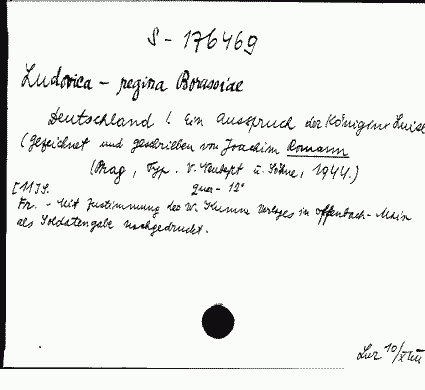 S - 176469
Ludovica - regina Borussiae
Deutschland! Ein Ausspruch der Königin Luise
(gezeichnet und geschrieben von Joachim Romann
(Prag, Typ. V. Neubert u. Söhne, 1944.)
[11] S. quer - 12°
Fr. - Mit Zustimmung des W. Kumm Verlages in Offenbach - Main
als Soldatengabe nachgedruckt.
10/XII